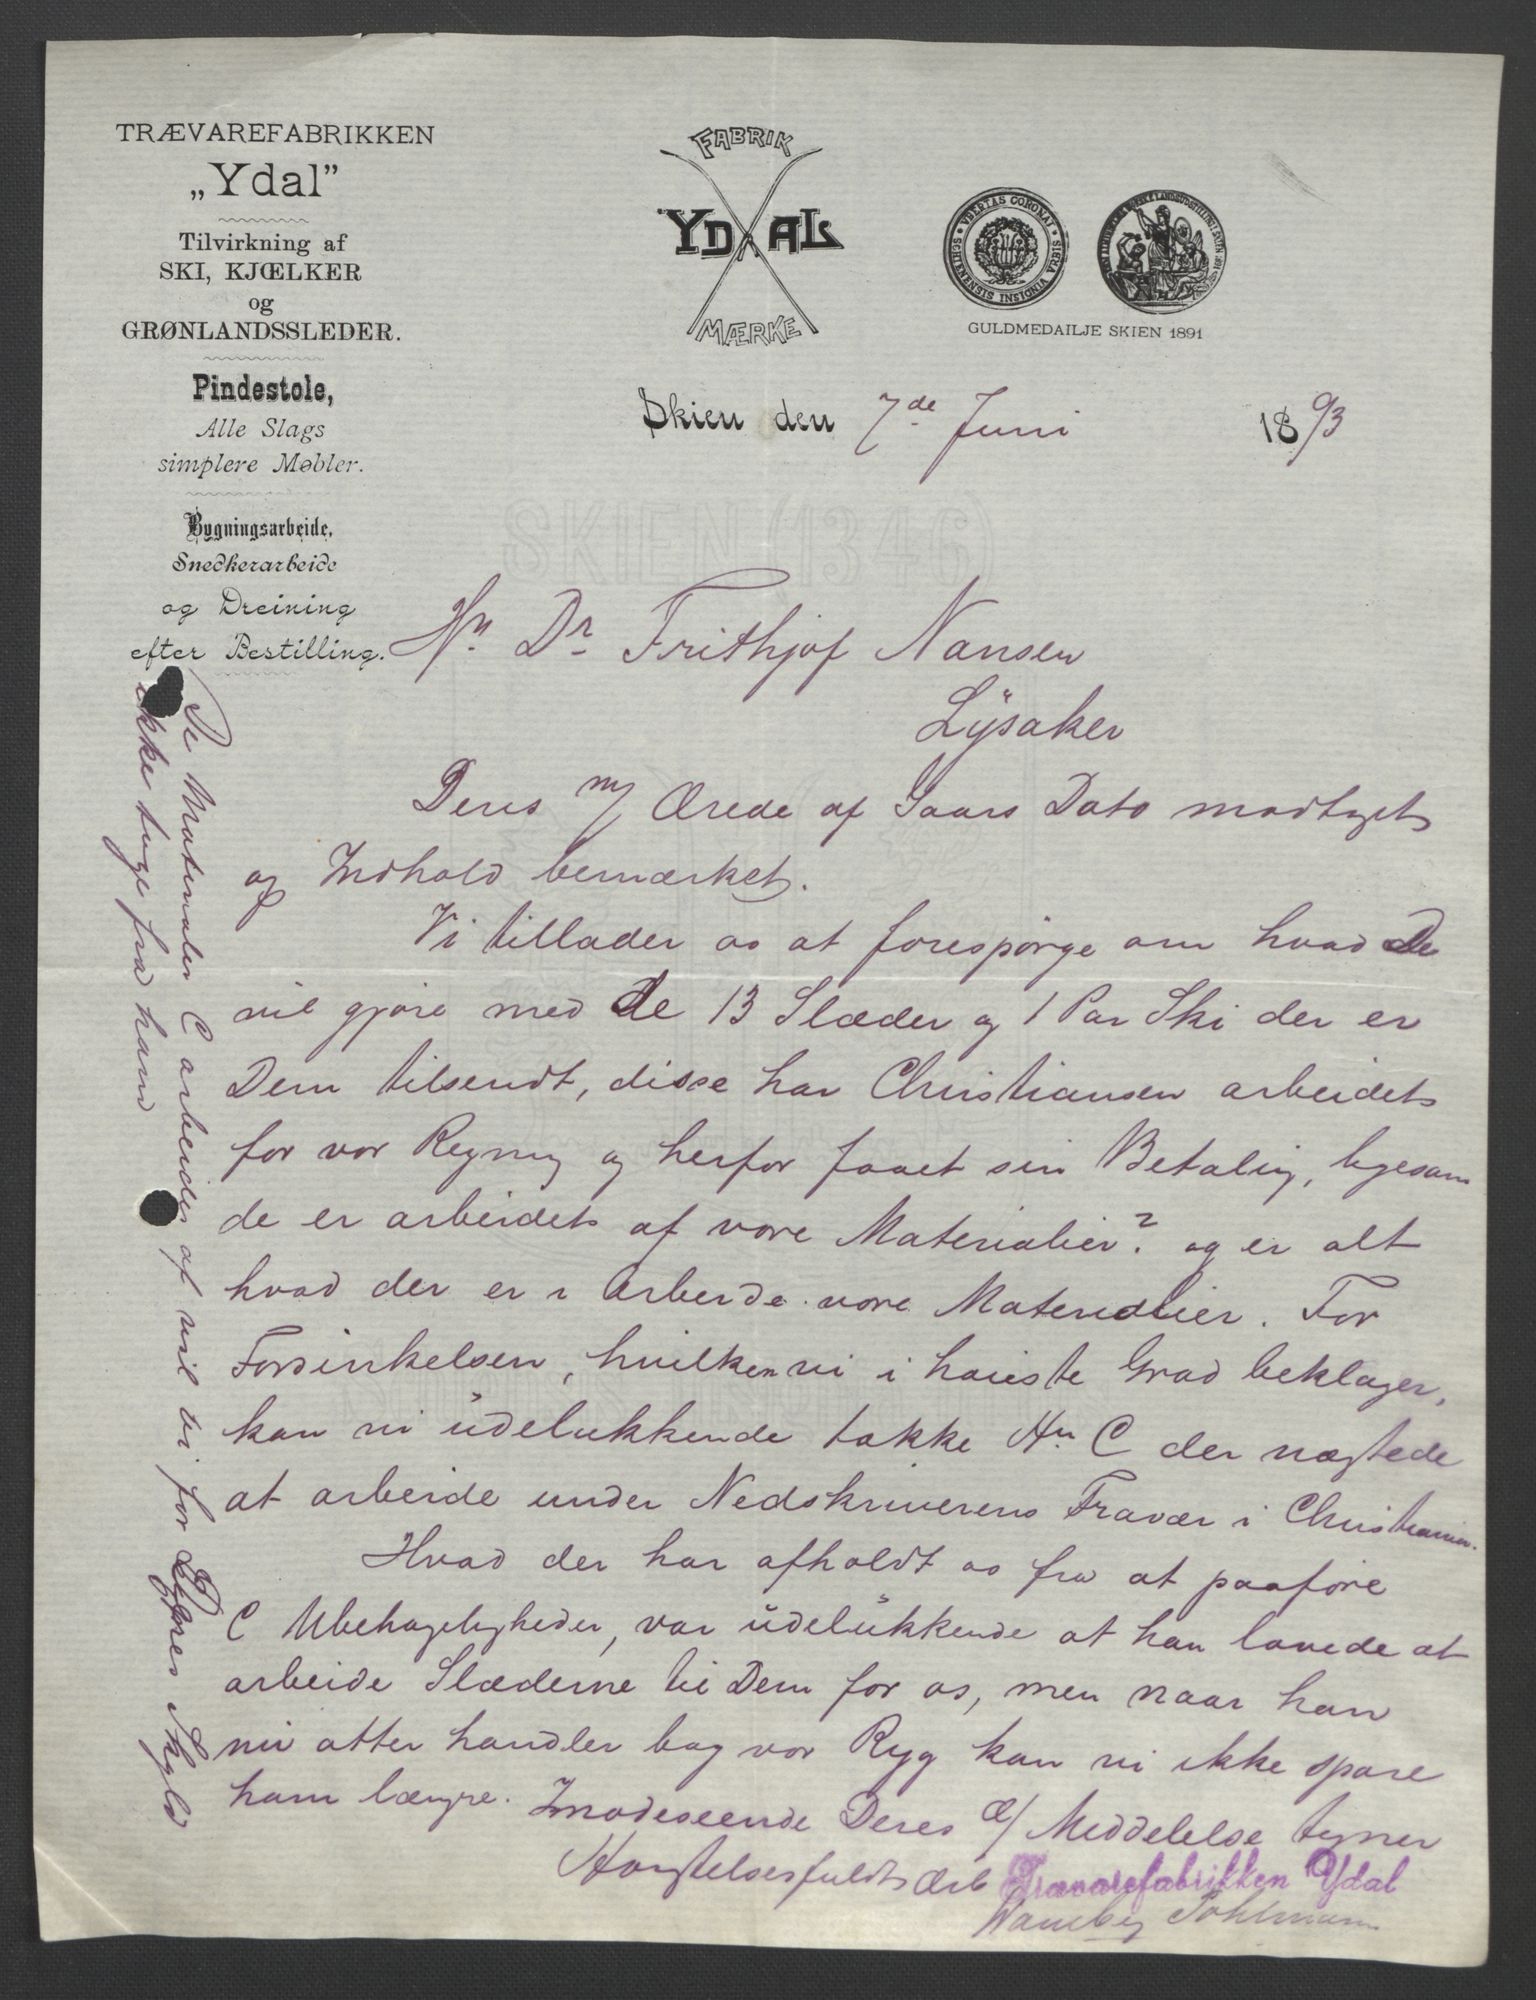 TRÆVAREFABRIKKEN
„Ydal”
Tilvirkning af
SKI, KJŒLKER
og
GRØNLANDSSLEDER.
Pindestole,
Alle Slags
simplere Møbler.
Bygningsarbeide,
Snedkerarbeide
og Dreining
efter Bestilling.
FABRIK
YDAL
MÆRKE
GULDMEDAILJE SKIEN 1891
Skien den 7de Juni 1893
Hn. Dr Frithjof Nansen
Lÿsaker
Deres m/ Ærede af Gaars Dato modtaget
og Indhold bemærket.
Vi tillader os at forespørge om hvad De
vil gjøre med de 13 Slæder og 1 Par Ski der er
Dem tilsendt, disse har Christiansen arbeidet
for vor Regning og herfor faaet sin Betaling, ligesom
de er arbeidet af vore Materialier? og er alt
hvad der er i Arbeide vore Materialier. For
Forsinkelsen, hvilken vi i høieste Grad beklager,
kan vi üdelukkende takke Hn C der nægtede
at arbeide under Nedskriverens Fravær i Christiania.
Hvad der har afholdt os fra at paaføre
C Ubehageligheder, var üdelükkende at han lovede at
arbeide Slæderne til Dem for os, men naar han
nu atter handler bag vor Ryg kan vi ikke spare
ham længre. Imødeseende Deres æ/ Meddelelse tegner
Høiagtelsesfuldt Ærb
Trævarefabrikken Ydal
De Materialer C arbeider af vil vi for Deres Skyld
ikke tage fra ham